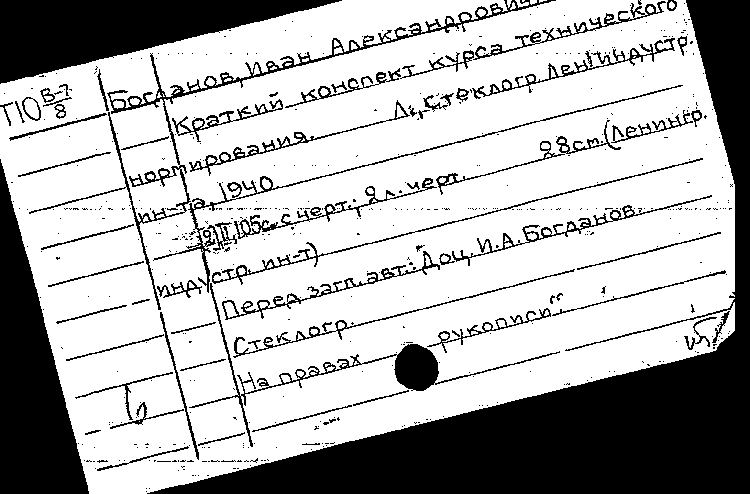 П10 В-7/8
Богданов, Иван Александрович.
Краткий конспект курса технического
нормирования. Л., Стеклогр. Лен. индустр.
ин-та, 1940
105с. с черт.; 2 л. черт. 28см. (Ленингр.
индустр. ин-т)
Перед загл. авт.: Доц. И.А. Богданов.
Стеклогр.
На правах рукописи".
б